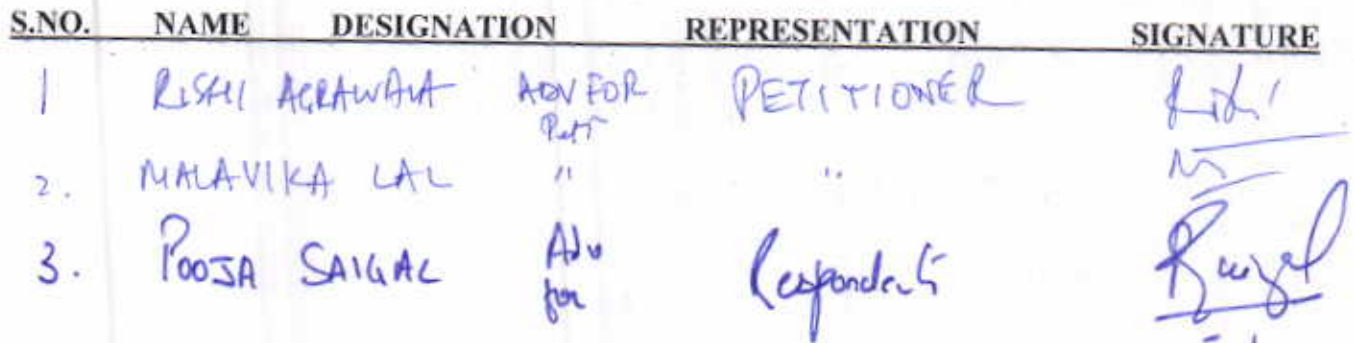 S.NO. NAME DESIGNATION REPRESENTATION SIGNATURE
1 RISHI AGRAWALA ADV FOR PETITIONER Rishi
Peti
2. MALAVIKA LAL " "
3. POOJA SAIGAL Adv Respondents
for